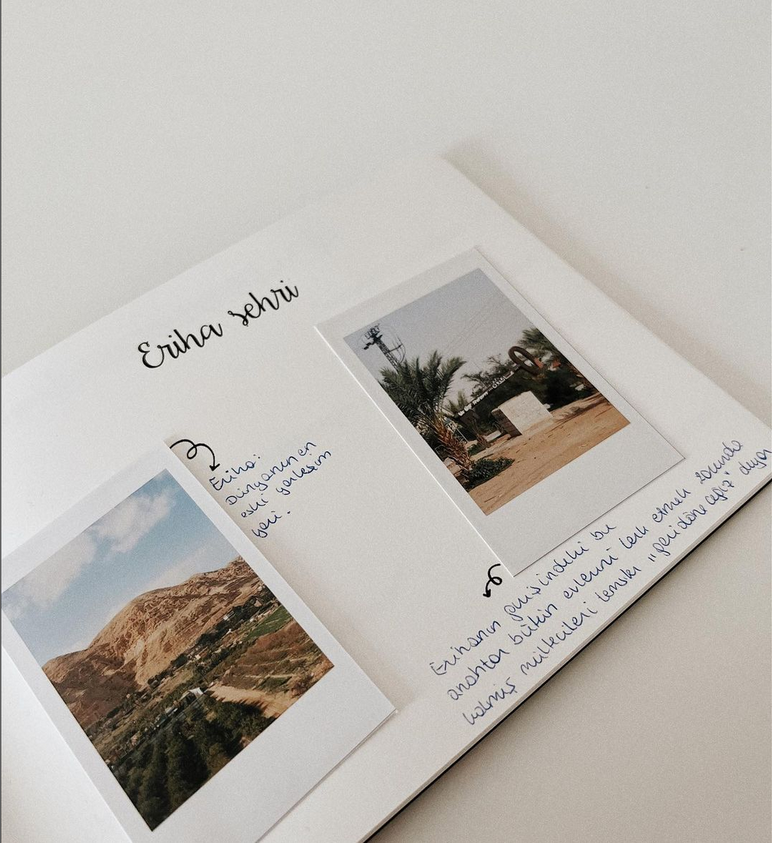 Eriha şehri
Eriha:
Dünyanın en
eski yerleşim
yeri.
Erihanın girişindeki bu
anahtar bütün evlerini terk etmek zorunda
kalmış mültecileri temsil "geri döneceğiz" diyor